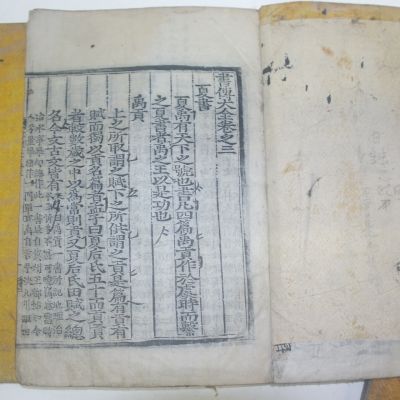 書傳大全卷之三
夏書
夏禹有天下之號也書凡四篇禹貢作於虞時而繫
之夏書者禹之王以是功也
禹貢
上之所取謂之賦下之所供謂之貢是篇有貢有
賦而獨以貢名篇者孟子曰夏后氏五十而貢貢
者較數歲之中以爲常則貢又夏后氏田賦之總
名今文古文皆有